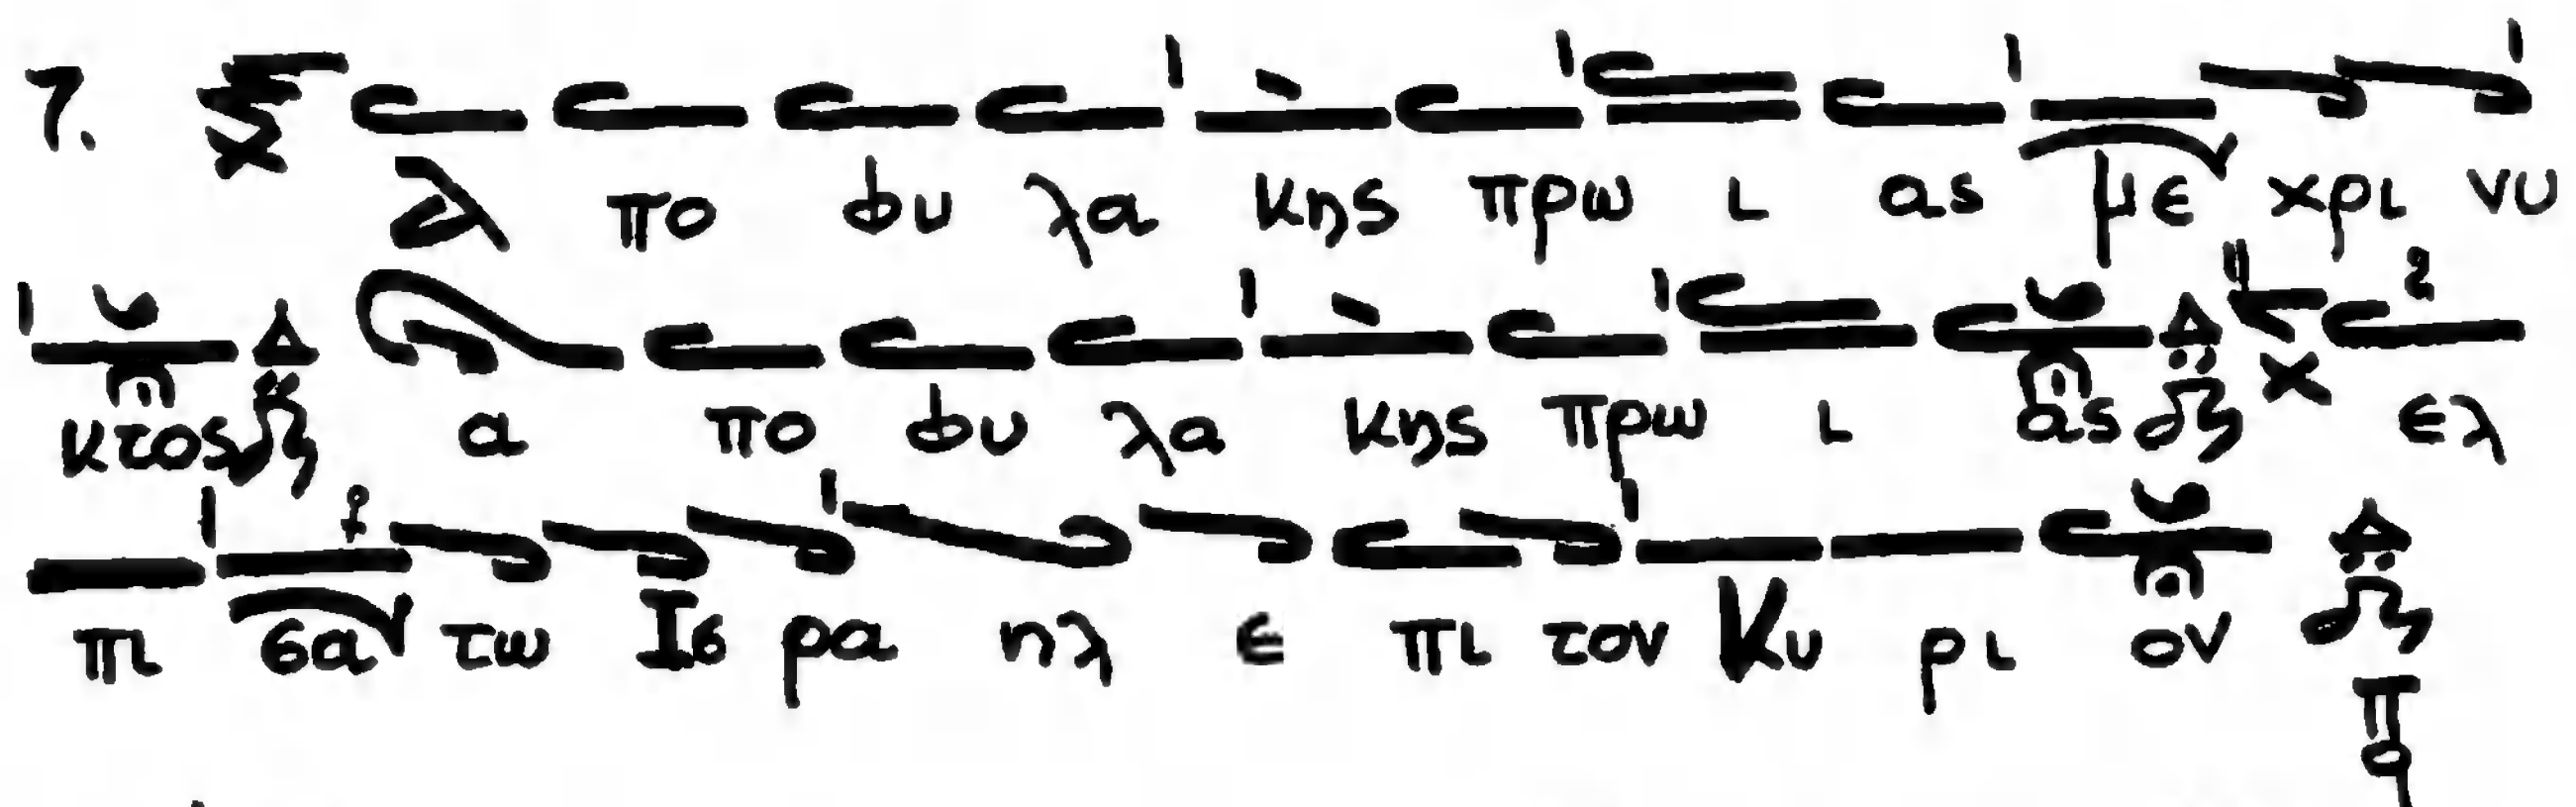 7. Α πο φυ λα κης πρω ι ας με χρι νυ
κτος Δ α πο φυ λα κης πρω ι ας Δ ελ
πι σα τω Ισ ρα ηλ ε πι τον Κυ ρι ον Δ